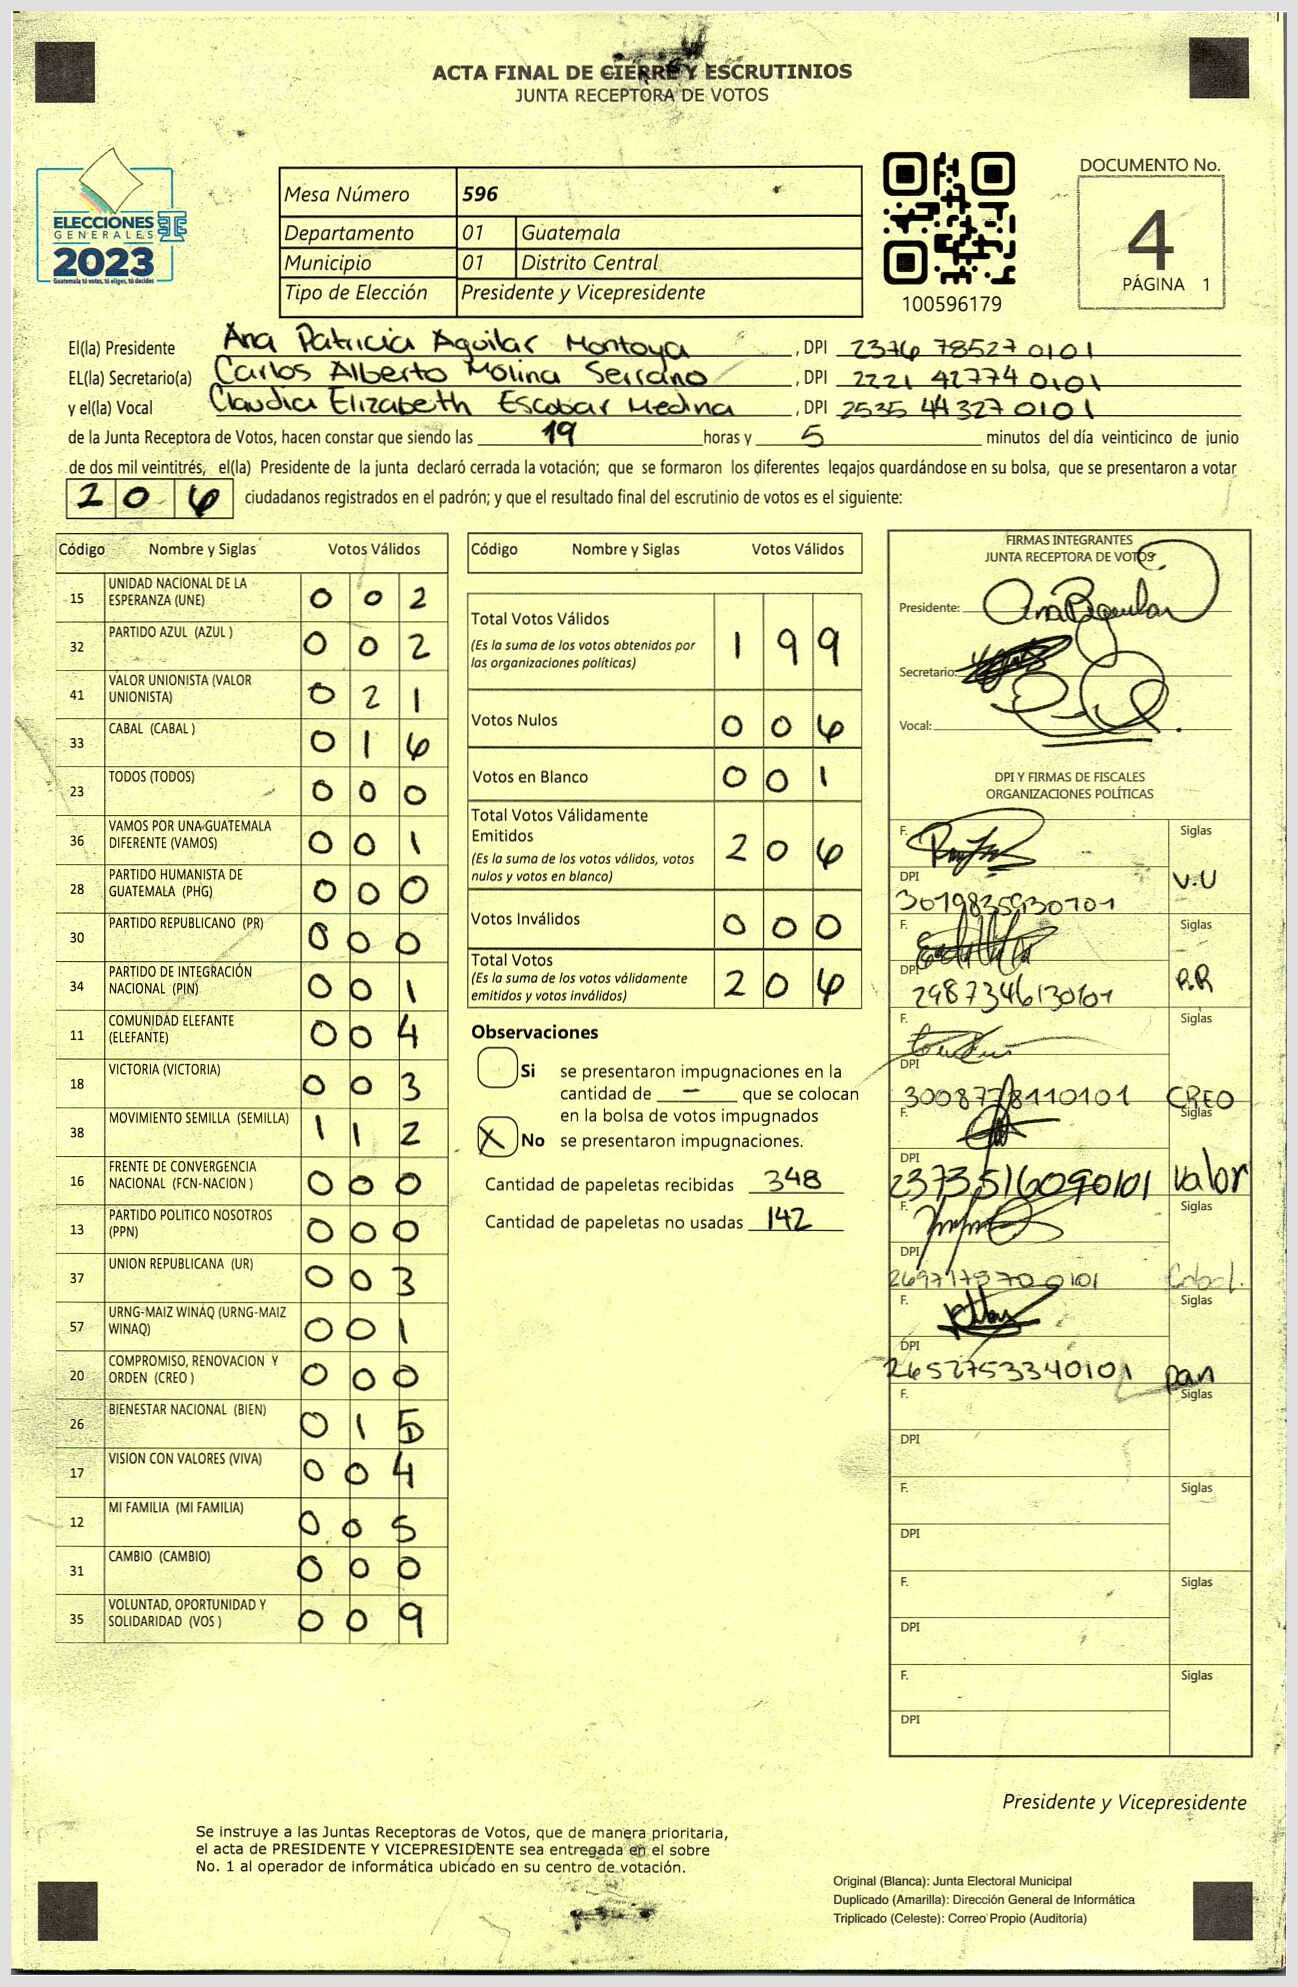 ACTA FINAL DE CIERRE Y ESCRUTINIOS
JUNTA RECEPTORA DE VOTOS
ELECCIONES
GENERALES
2023
Guatemala tú votas, tú eliges, tú decides
Mesa Número 596
Departamento 01 Guatemala
Municipio 01 Distrito Central
Tipo de Elección Presidente y Vicepresidente
100596179
DOCUMENTO No.
4
PÁGINA 1
El(la) Presidente Ana Patricia Aguilar Montoya, DPI 2376 78527 0101
EL(la) Secretario(a) Carlos Alberto Molina Serrano, DPI 2221 42774 0101
y el(la) Vocal Claudia Elizabeth Escobar Medina, DPI 2535 44327 0101
de la Junta Receptora de Votos, hacen constar que siendo las 19 horas y 5 minutos del día veinticinco de junio
de dos mil veintitrés, el(la) Presidente de la junta declaró cerrada la votación; que se formaron los diferentes legajos quardándose en su bolsa, que se presentaron a votar
206 ciudadanos registrados en el padrón; y que el resultado final del escrutinio de votos es el siguiente:
Código Nombre y Siglas Votos Válidos
15 UNIDAD NACIONAL DE LA ESPERANZA (UNE) 0 0 2
32 PARTIDO AZUL (AZUL ) 0 0 2
41 VALOR UNIONISTA (VALOR UNIONISTA) 0 2 1
33 CABAL (CABAL ) 0 1 6
23 TODOS (TODOS) 0 0 0
36 VAMOS POR UNA GUATEMALA DIFERENTE (VAMOS) 0 0 1
28 PARTIDO HUMANISTA DE GUATEMALA (PHG) 0 0 0
30 PARTIDO REPUBLICANO (PR) 0 0 0
34 PARTIDO DE INTEGRACIÓN NACIONAL (PIN) 0 0 1
11 COMUNIDAD ELEFANTE (ELEFANTE) 0 0 4
18 VICTORIA (VICTORIA) 0 0 3
38 MOVIMIENTO SEMILLA (SEMILLA) 1 1 2
16 FRENTE DE CONVERGENCIA NACIONAL (FCN-NACION ) 0 0 0
13 PARTIDO POLITICO NOSOTROS (PPN) 0 0 0
37 UNION REPUBLICANA (UR) 0 0 3
57 URNG-MAIZ WINAQ (URNG-MAIZ WINAQ) 0 0 1
20 COMPROMISO, RENOVACION Y ORDEN (CREO ) 0 0 0
26 BIENESTAR NACIONAL (BIEN) 0 1 5
17 VISION CON VALORES (VIVA) 0 0 4
12 MI FAMILIA (MI FAMILIA) 0 0 5
31 CAMBIO (CAMBIO) 0 0 0
35 VOLUNTAD, OPORTUNIDAD Y SOLIDARIDAD (VOS ) 0 0 9
Código Nombre y Siglas Votos Válidos
Total Votos Válidos 1 9 9
(Es la suma de los votos obtenidos por
las organizaciones políticas)
Votos Nulos 0 0 6
Votos en Blanco 0 0 1
Total Votos Válidamente
Emitidos 2 0 6
(Es la suma de los votos válidos, votos
nulos y votos en blanco)
Votos Inválidos 0 0 0
Total Votos 2 0 6
(Es la suma de los votos válidamente
emitidos y votos inválidos)
Observaciones
Si se presentaron impugnaciones en la
cantidad de — que se colocan
en la bolsa de votos impugnados
X No se presentaron impugnaciones.
Cantidad de papeletas recibidas 348
Cantidad de papeletas no usadas 142
FIRMAS INTEGRANTES
JUNTA RECEPTORA DE VOTOS
Presidente: Ana Aguilar
Secretario:
Vocal:
DPI Y FIRMAS DE FISCALES
ORGANIZACIONES POLÍTICAS
F. Siglas
DPI V.U
3019835930101
F. Siglas
DPI P.R
2987346130101
F. Siglas
DPI
3008778110101 CREO
F. Siglas
DPI
2373516090101 Valor
F. Siglas
DPI
2697175700101 Cabal.
F. Siglas
DPI
2652753340101 pan
F. Siglas
DPI
F. Siglas
DPI
F. Siglas
DPI
F. Siglas
DPI
Presidente y Vicepresidente
Se instruye a las Juntas Receptoras de Votos, que de manera prioritaria,
el acta de PRESIDENTE Y VICEPRESIDENTE sea entregada en el sobre
No. 1 al operador de informática ubicado en su centro de votación.
Original (Blanca): Junta Electoral Municipal
Duplicado (Amarilla): Dirección General de Informática
Triplicado (Celeste): Correo Propio (Auditoría)